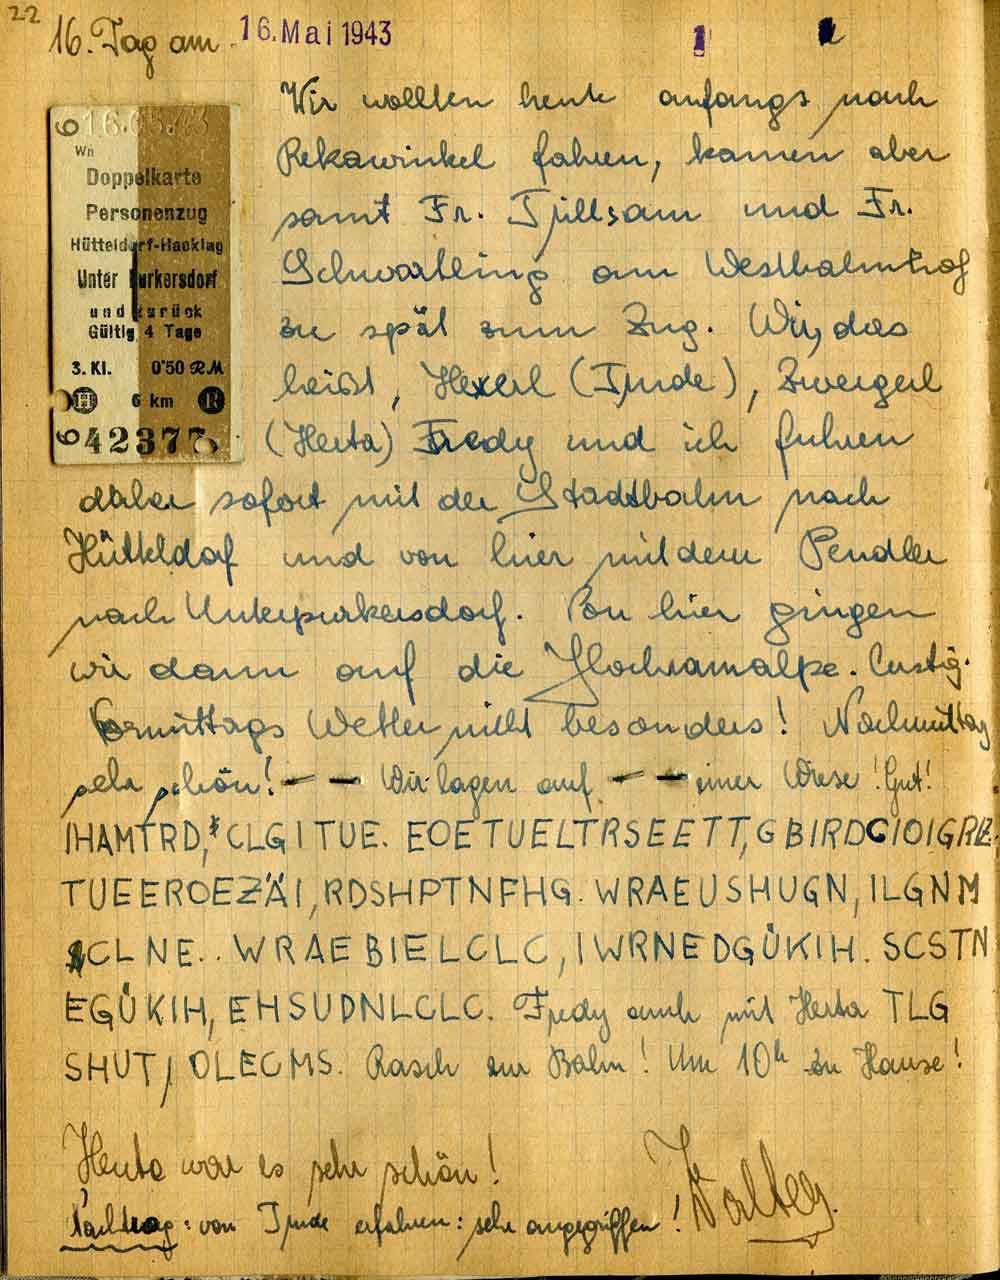 22
16. Tag am 16. Mai 1943 1
Wir wollten heute anfangs nach
Rekawinkel fahren, kamen aber
samt Fr. und Fr.
am Westbahnhof
zu spät zum Zug. Wir, das
heißt, Hexerl (Trude), Zwergerl
(Herta) Fredy und ich fuhren
daher sofort mit der Stadtbahn nach
Hütteldorf und von hier mit dem Pendler
nach Unterpurkersdorf. Von hier gingen
wir dann auf die Hochramalpe. Lustig.
Vormittags Wetter nicht besonders! Nachmittag
sehr schön! — — Wir lagen auf — — einer Wiese! Gut!
IHAMTRD, CLGITUE. EOETUELTRSEETT, GBIRDCIOIGR
TUEEROEZÄI, RDSHPTNFHG. WRAEUSHUGN, ILGNM
CLNE.. WRAEBIELCLC, IWRNEDGÜKIH. SCSTN
EGÜKIH, EHSUDNLCLC. Fredy auch mit Herta TLG
SHUT, OLECMS. Rasch zur Bahn! Um 10h zu Hause!
Heute war es sehr schön!
Nachtrag: von Trude erfahren: sehr angegriffen! Walter.
6 16.05.43
Wn
Doppelkarte
Personenzug
Hütteldorf-Hacking
Unter Purkersdorf
und zurück
Gültig 4 Tage
3. Kl. 0'50 RM
H 6 km R
6 42377